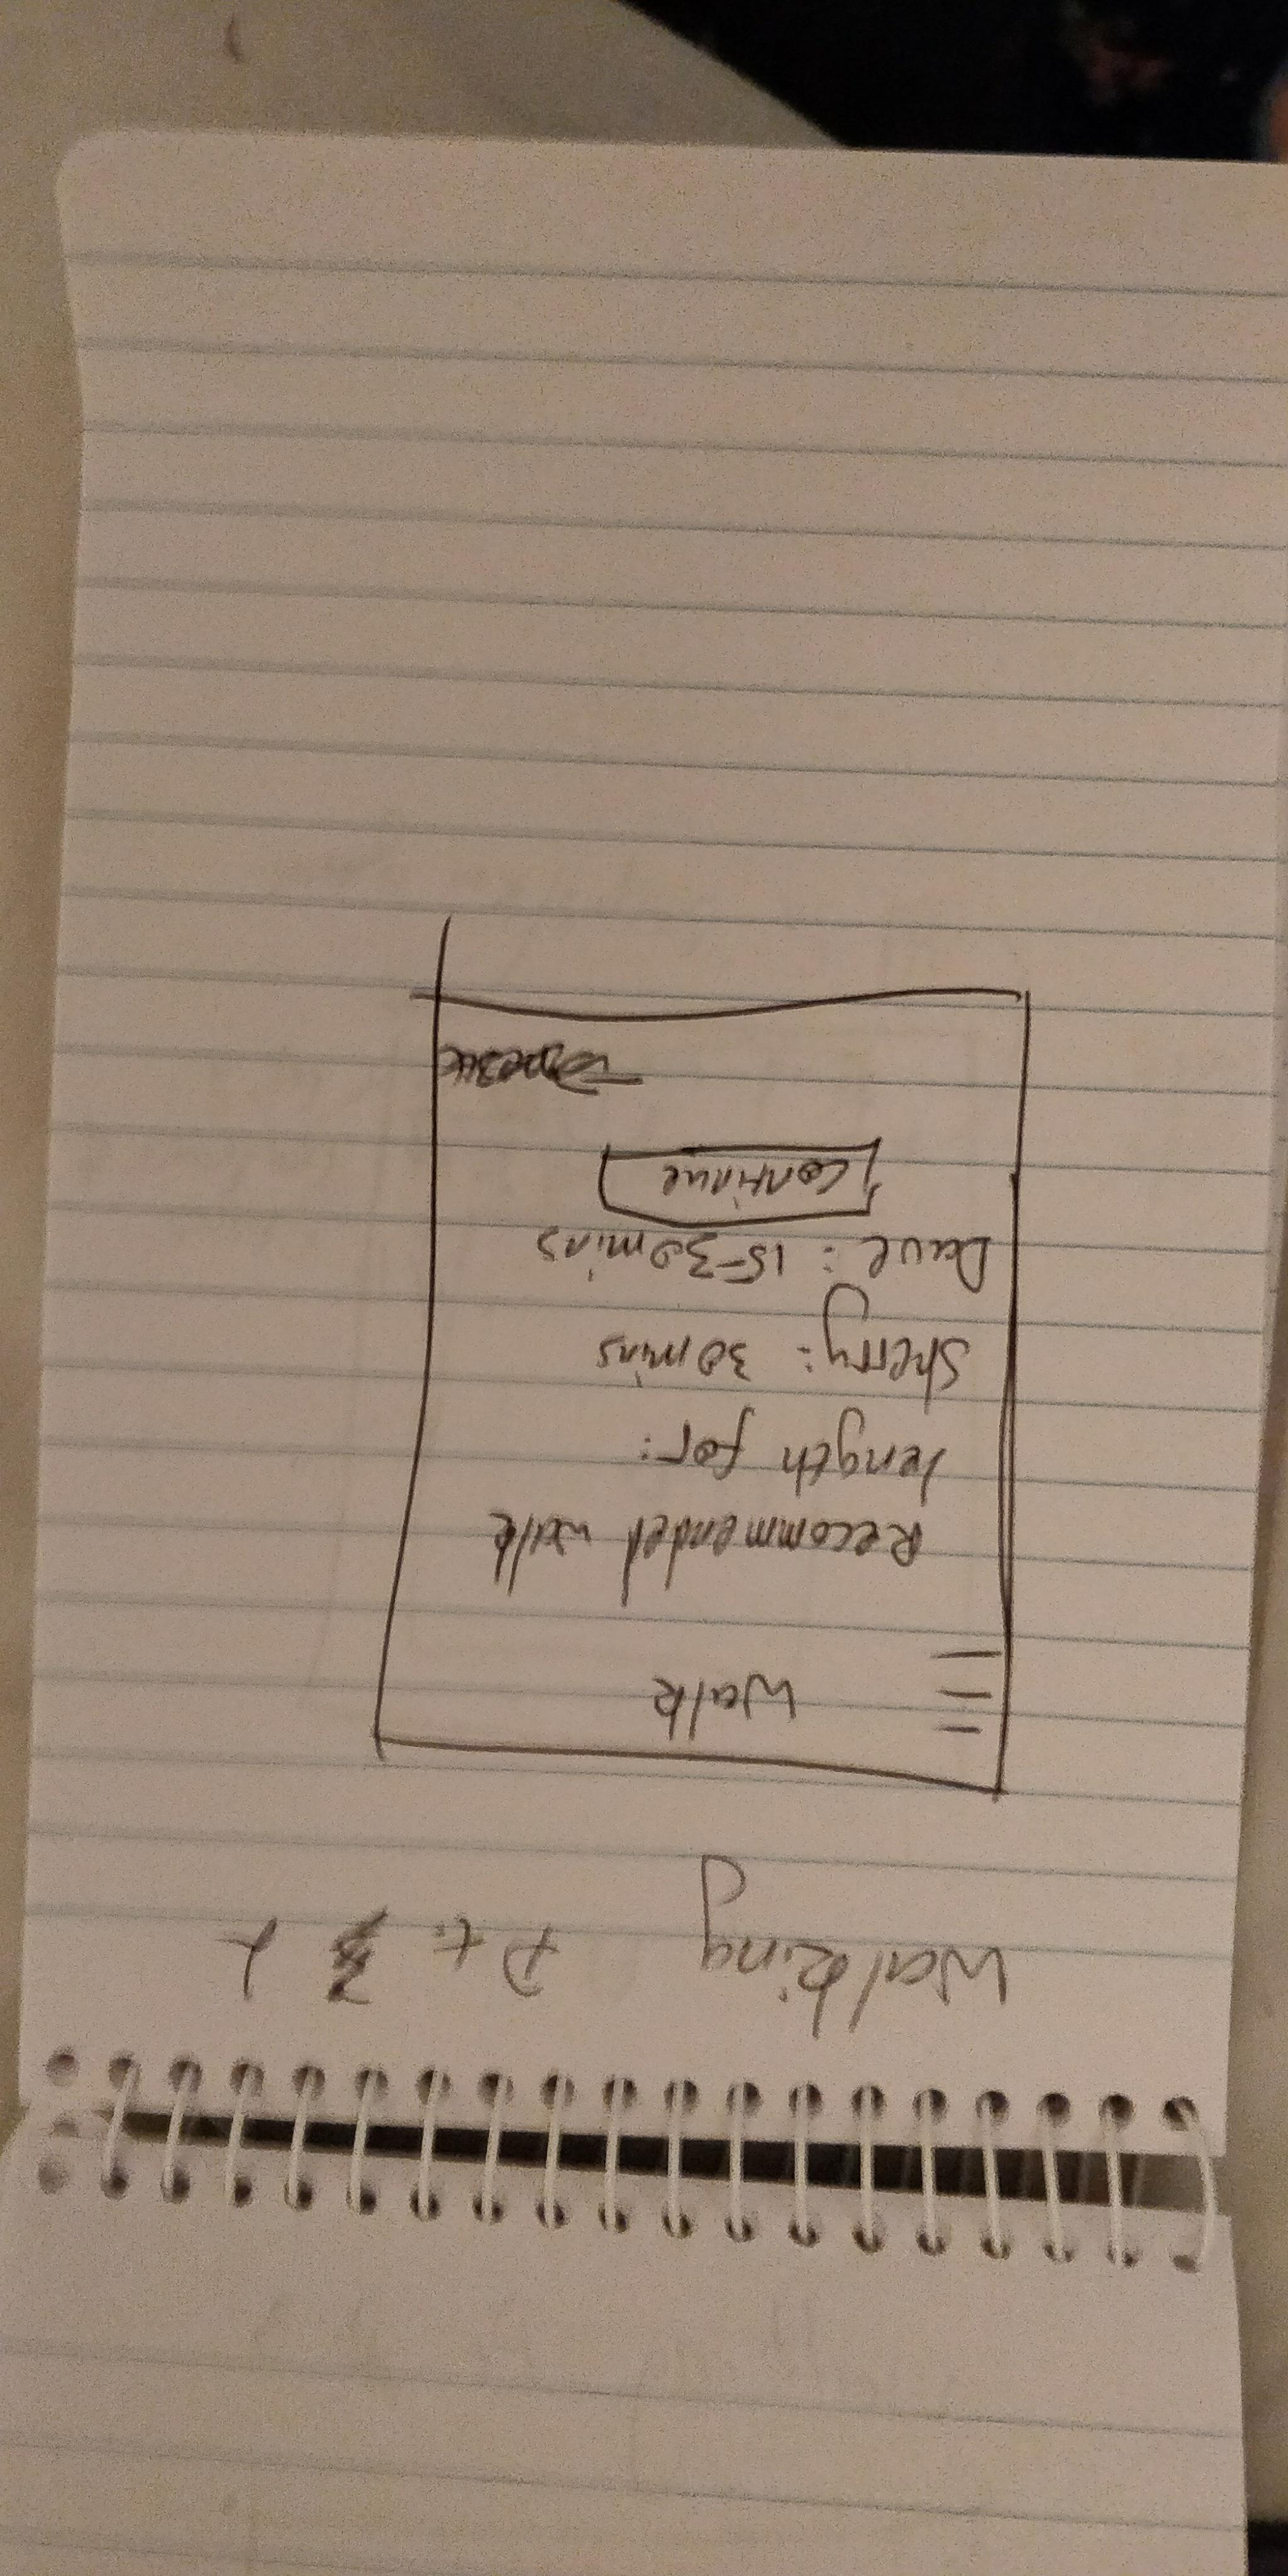 Walking Pt. 2
Walk
Recommended walk
length for:
Sherry: 30 mins
Dave: 15-30 mins
Continue